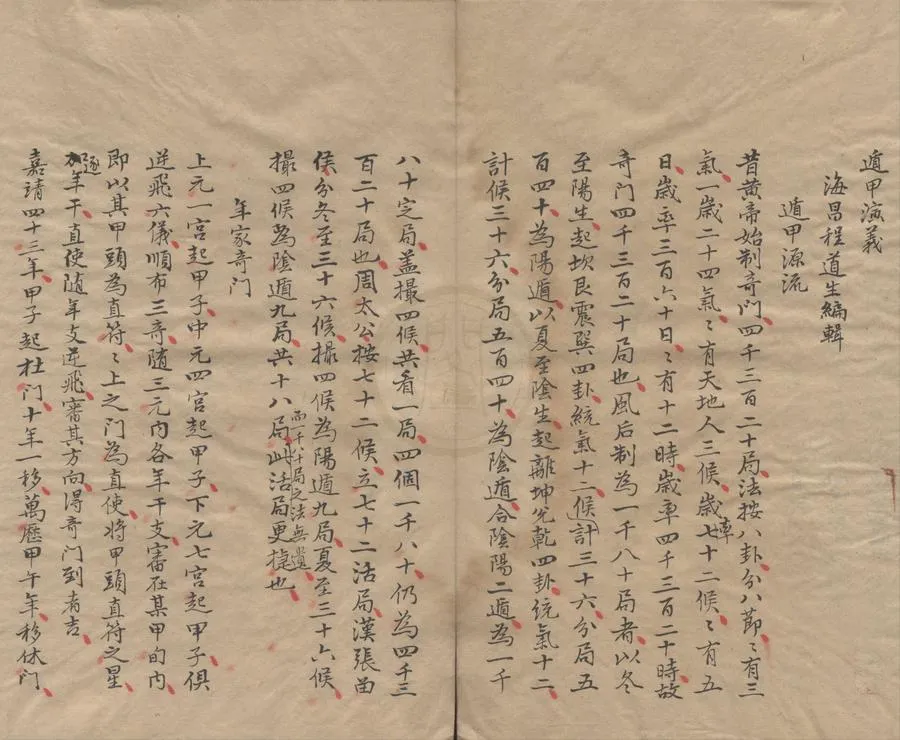 遁甲演義
海昌程道生編輯
遁甲源流
昔黃帝始制奇門四千三百二十局法按八卦分八節〻有三
氣一歲二十四氣〻有天地人三候歲率七十二候〻有五
日歲率三百六十日〻有十二時歲率四千三百二十時故
奇門四千三百二十局也風后制為一千八十局者以冬
至陽生起坎艮震巽四卦統氣十二候計三十六分局五
百四十為陽遁以夏至陰生起離坤兌乾四卦統氣十二
計候三十六分局五百四十為陰遁合陰陽二遁為一千
八十定局蓋撮四候共看一局四個一千八十仍為四千三
百二十局也周太公按七十二候立七十二活局漢張留
侯分冬至三十六候撮四候為陽遁九局夏至三十六候
撮四候為陰遁九局共十八局而一千八十局之法無遺此活局更捷也
年家奇門
上元一宮起甲子中元四宮起甲子下元七宮起甲子俱
逆飛六儀順布三奇隨三元內各年干支審在某甲旬內
即以其甲頭為直符〻上之門為直使將甲頭直符之星
加逐年干直使隨年支逆飛審其方向得奇門到者吉
嘉靖四十三年甲子起杜門十年一移萬歷甲午年移休門